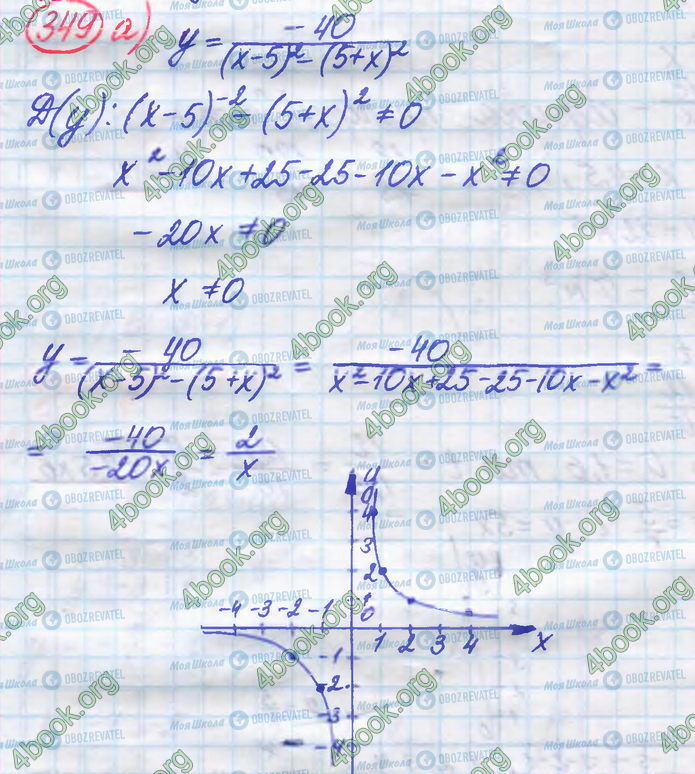 349 а) y = -40 / ((x-5)² - (5+x)²)
D(y): (x-5)⁻² - (5+x)² ≠ 0
x² - 10x + 25 - 25 - 10x - x² ≠ 0
-20x ≠ 0
x ≠ 0
y = -40 / ((x-5)² - (5+x)²) = -40 / (x² - 10x + 25 - 25 - 10x - x²) =
= -40 / -20x = 2 / x
y
4
3
2
1
0
-4 -3 -2 -1
1 2 3 4 x
-1
-2
-3
-4
4book.org
Моя Школа OBOZREVATEL